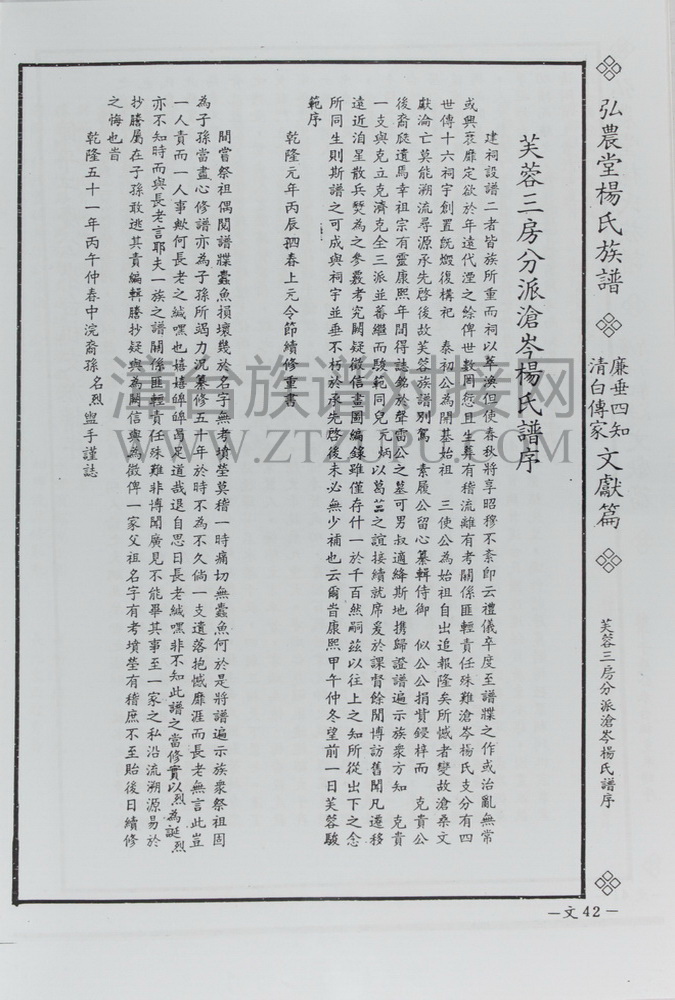 弘農堂楊氏族譜
廉垂四知
清白傳家
文獻篇
芙蓉三房分派滄岑楊氏譜序
芙蓉三房分派滄岑楊氏譜序
建祠設譜二者皆族所重而祠以萃渙但使春秋將享昭穆不紊即云禮儀卒度至譜牒之作或治亂無常
或興衰靡定欲於年遠代湮之餘俾世數罔愆且生算有稽流離有考關係匪輕責任殊難滄岑楊氏支分有四
世傳十六祠宇創置既燬復構祀 泰初公為開基始祖 三使公為始祖自出追報隆矣所憾者變故滄桑文
獻淪亡莫能溯流尋源承先啓後故芙蓉族譜別駕 素履公留心纂輯侍御 似公公捐貲鋟梓而 克貴公
後裔庭遺馬幸祖宗有靈康熙年間得誌銘於聲雷公之墓可男叔適絳斯地携歸證譜遍示族衆方知 克貴
一支與克立克濟克全三派並蕃繼而駿範同兄元炳以葛藟之誼接續就席爰於課督餘閒博訪舊聞凡遷移
遠近洎星散兵燹為之參覈考究闕疑徵信畫圖編錄雖僅存什一於千百然嗣茲以往上之知所從出下之念
所同生則斯譜之可成與祠宇並垂不朽於承先啓後未必無少補也云爾旹康熙甲午仲冬望前一日芙蓉駿
範序
乾隆元年丙辰泗春上元令節續修重書
間嘗祭祖偶閱譜牒蠹魚損壞幾於名字無考墳塋莫稽一時痛切無蠹魚何於是將譜遍示族衆祭祖固
為子孫當盡心修譜亦為子孫所竭力況纂修五十年於時不為不久倘一支遺落抱憾靡涯而長老無言此豈
一人責而一人事歟何長老之緘嘿也嬉嬉皞皞曷足道哉退自思日長老緘嘿非不知此譜之當修實以烈為誕烈
亦不知時而與長老言耶夫一族之譜關係匪輕責任殊難非博聞廣見不能畢其事至一家之私沿流溯源易於
抄謄屬在子孫敢逃其責編輯謄抄疑與為闕信與為徵俾一家父祖名字有考墳塋有稽庶不至貽後日續修
之悔也旹
乾隆五十一年丙午仲春中浣裔孫名烈盥手謹誌
—文42—
清分族譜对接网
WWW.ZTZUPU.COM